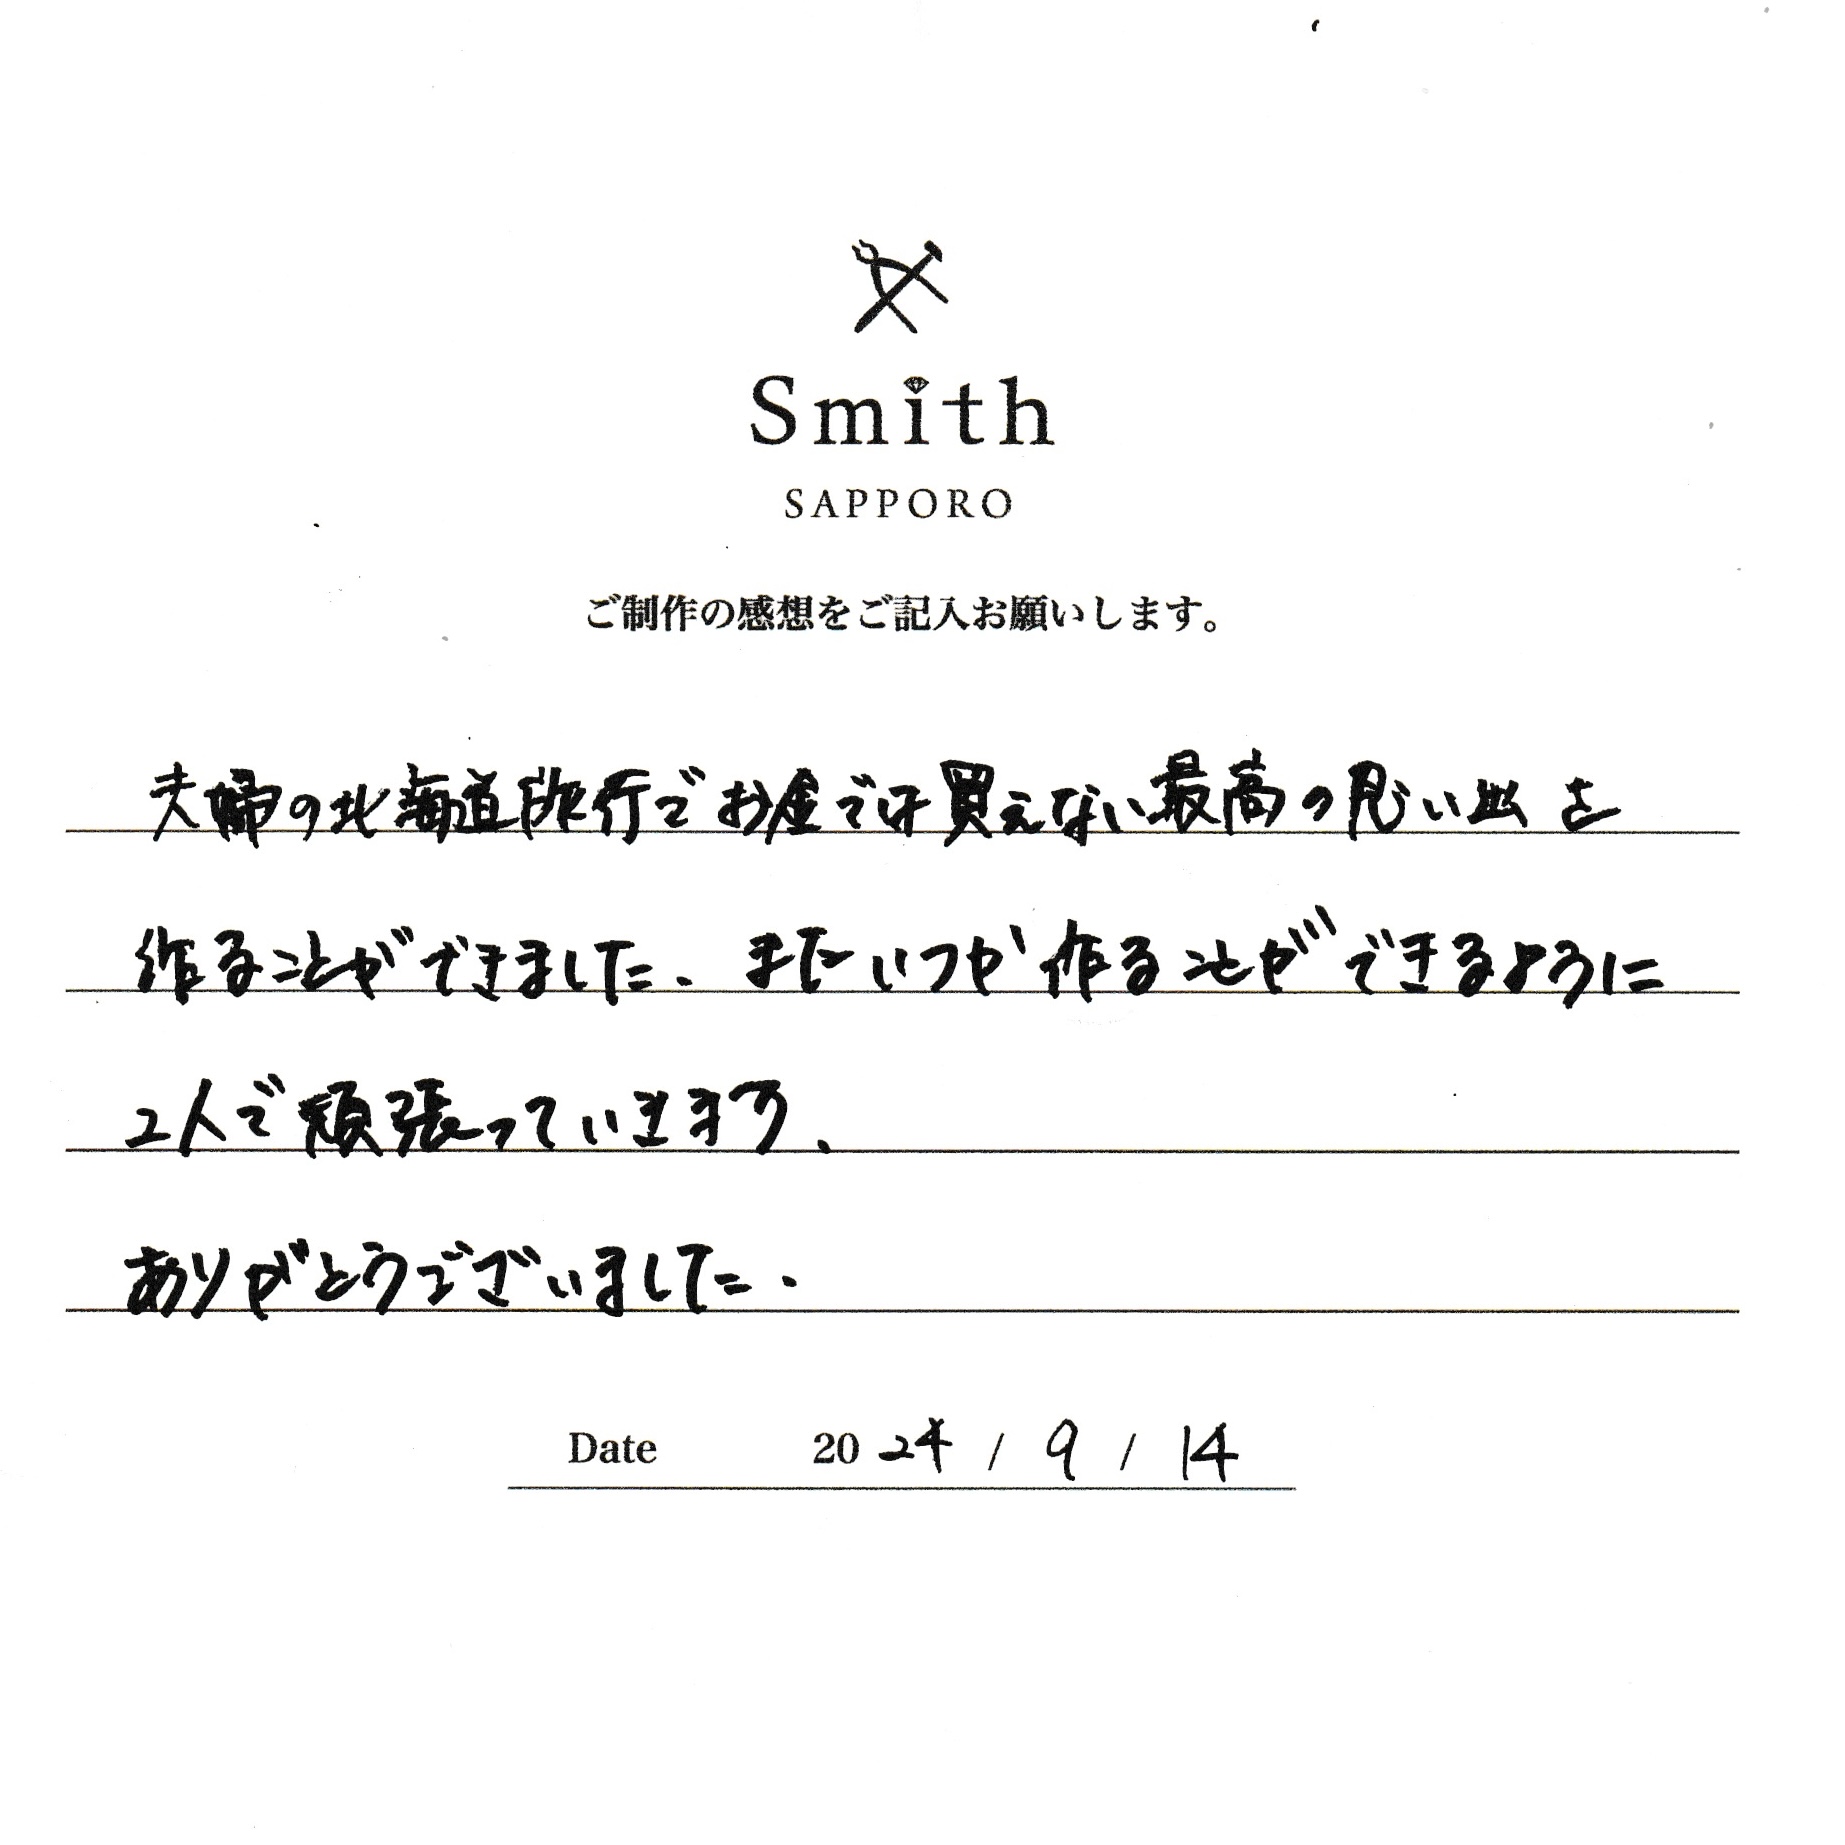 Smith
SAPPORO
ご制作の感想をご記入お願いします。
夫婦の北海道旅行でお金では買えない最高の思い出を
作ることができました。またいつか作ることができるように
2人で頑張っていきます。
ありがとうございました。
Date 2024 / 9 / 14